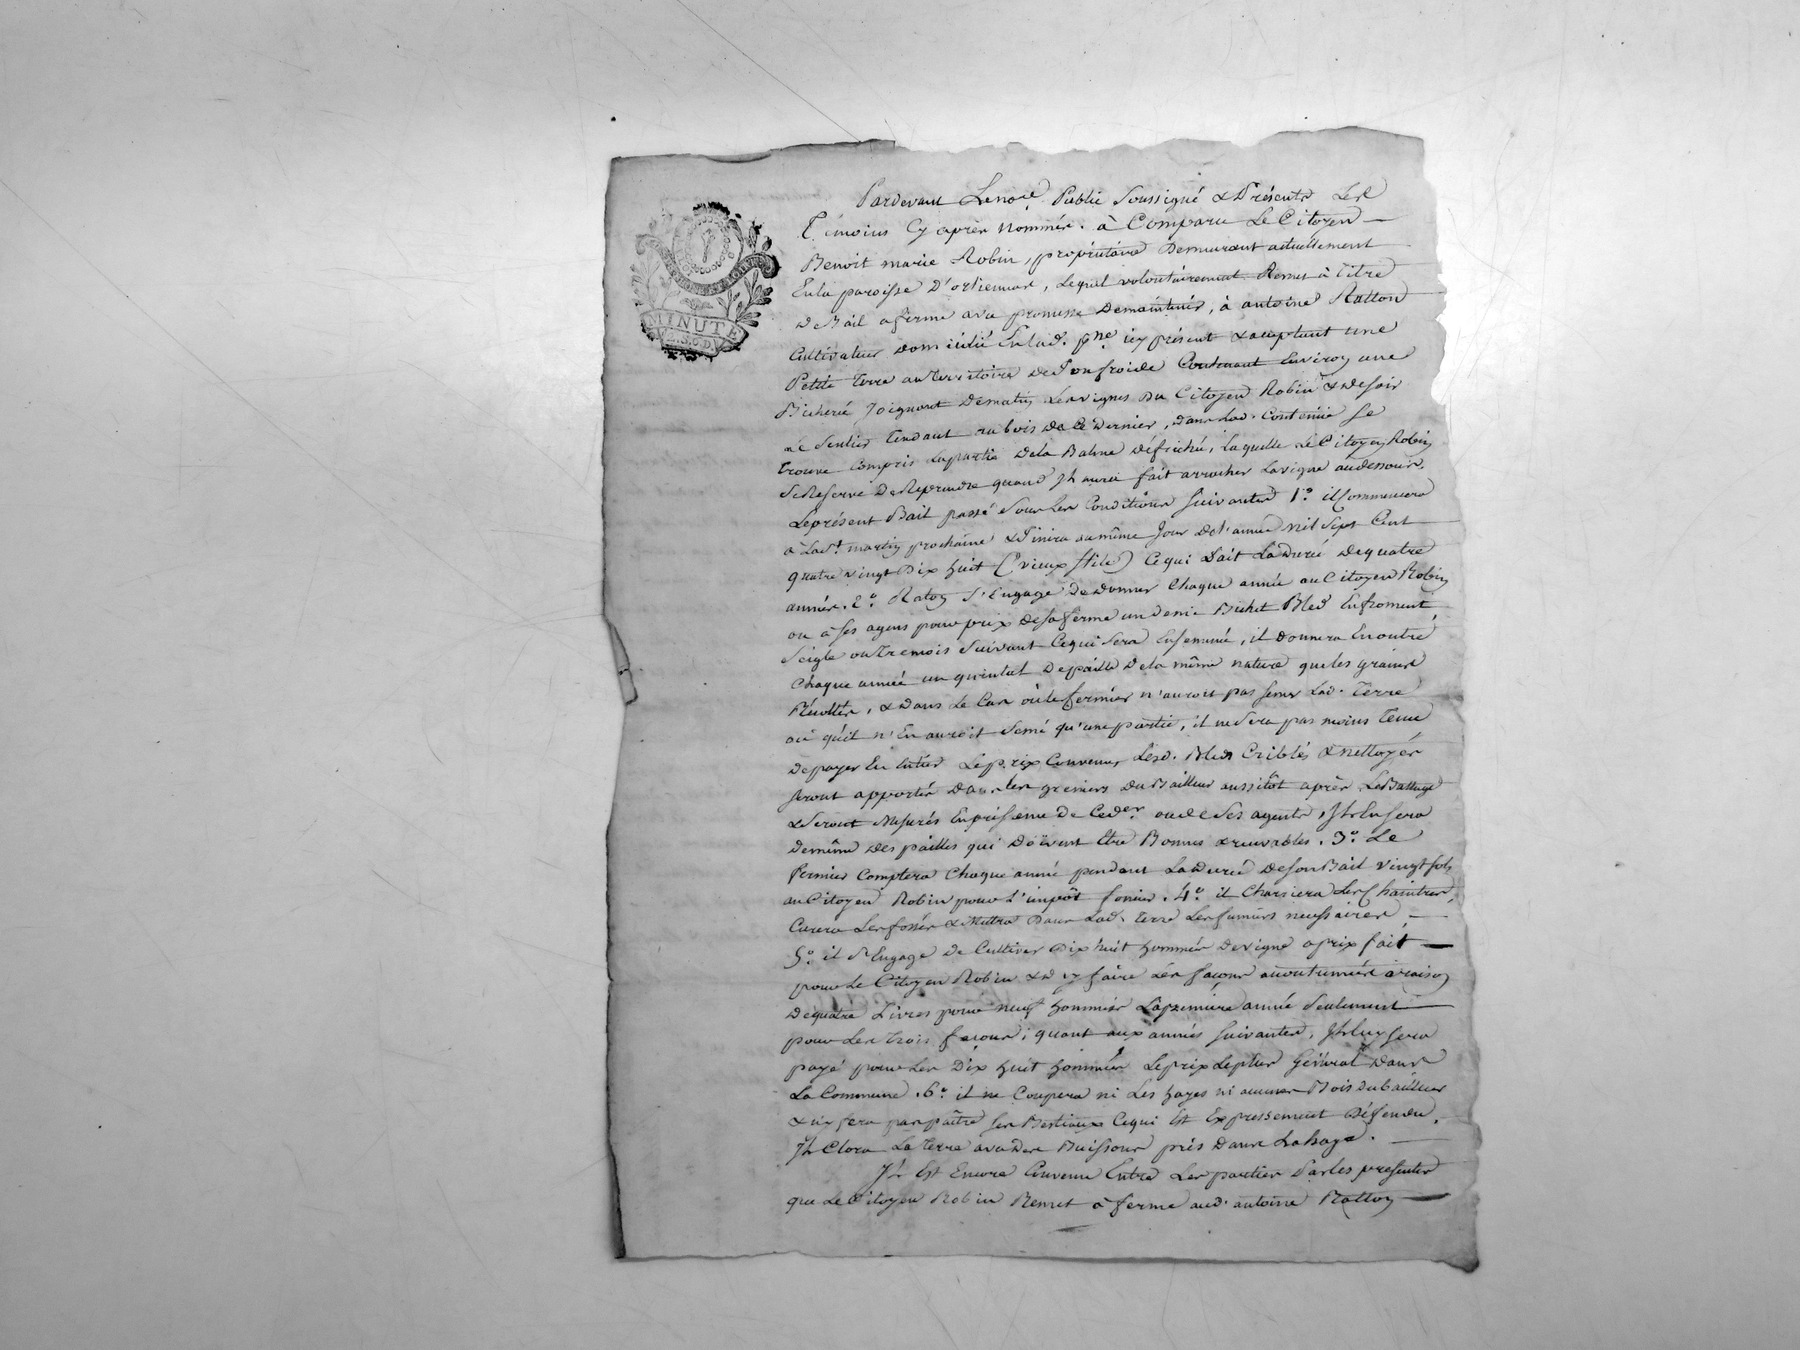 MINUTE
Pardevant Le notre Public Soussigné & Présents Les
Témoins Cy après nommés. à Comparu Le Citoyen
Benoit marie Robin, propriétaire Demeurant actuellement
En la paroisse D'orliennas, Lequel volontairement Remet à Titre
De Bail a ferme avec promesse De maintenir, à antoine Ratton
Cultivateur Domicilié En lad. psse icy présent & acceptant une
Petite Terre au Territoire De fonfroide Contenant Environ une
Bicherée Joignant De matin Les vignes Du Citoyen Robin & De soir
Le Sentier Tendant au bois De Ce Dernier, Dans Lad. Contenue se
Trouve Compris La partie De la Balme Défrichée, Laquelle Le Citoyen Robin
Se Reserve De Reprendre quand Jl aura fait arracher La vigne au dessous.
Le présent Bail passé Sous Les Conditions Suivantes 1.° il Commencera
a La St. martin prochaine & finira au même Jour De l'année mil Sept Cent
quatre vingt Dix huit (vieux stile) Ce qui fait La Durée De quatre
années. 2.° Raton S'Engage De Donner Chaque année au Citoyen Robin
ou à Ses agens pour prix De Sa ferme un Demi Bichet Bled En froment
Seigle ou Tremois Suivant Ce qui Sera Ensemencé, il Donnera En outre
Chaque année un quintal De paille De la même nature que les grains
Récoltés, & Dans Le Cas où le fermier n'auroit pas semé Lad. Terre
où qu'il n'En auroit Semé qu'une partie, il ne Sera pas moins Tenu
De payer En Entier Le prix Convenu, Lesd. Bleds Criblés & nettoyés
seront apportés Dans les greniers Du Bailleur aussitôt après Le Battage
& Seront Mesurés En présence De Ce der. ou de Ses agents, Jl En sera
De même Des pailles qui Doivent Etre Bonnes & recevables. 3.° Le
fermier Comptera Chaque année pendant La Durée De son Bail vingt sols
au Citoyen Robin pour L'impôt foncier. 4.° il Charriera Les Chaintres,
Curera Les fossés & Mettra Dans Lad. Terre Les fumiers necessaires
5.° il S'Engage De Cultiver Dix huit hommées De vigne a prix fait
pour Le Citoyen Robin & D'y faire Les façons accoutumées a raison
De quatre Livres pour neuf hommées La premiere année Seulement
pour Les Trois façons; quant aux années Suivantes, Jl Luy sera
payé pour Les Dix huit hommées Le prix Le plus Général Dans
La Commune. 6.° il ne Coupera ni Les hayes ni aucuns Bois du bailleur
& n'y fera pas paître Ses Bestiaux Ce qui Est Expressement Défendu,
Jl Clora La Terre avec Des Buissons pris Dans La haye.
Jl Est Encore Convenu Entre Les parties Par les presentes
que Le Citoyen Robin Remet à ferme aud. antoine Ratton